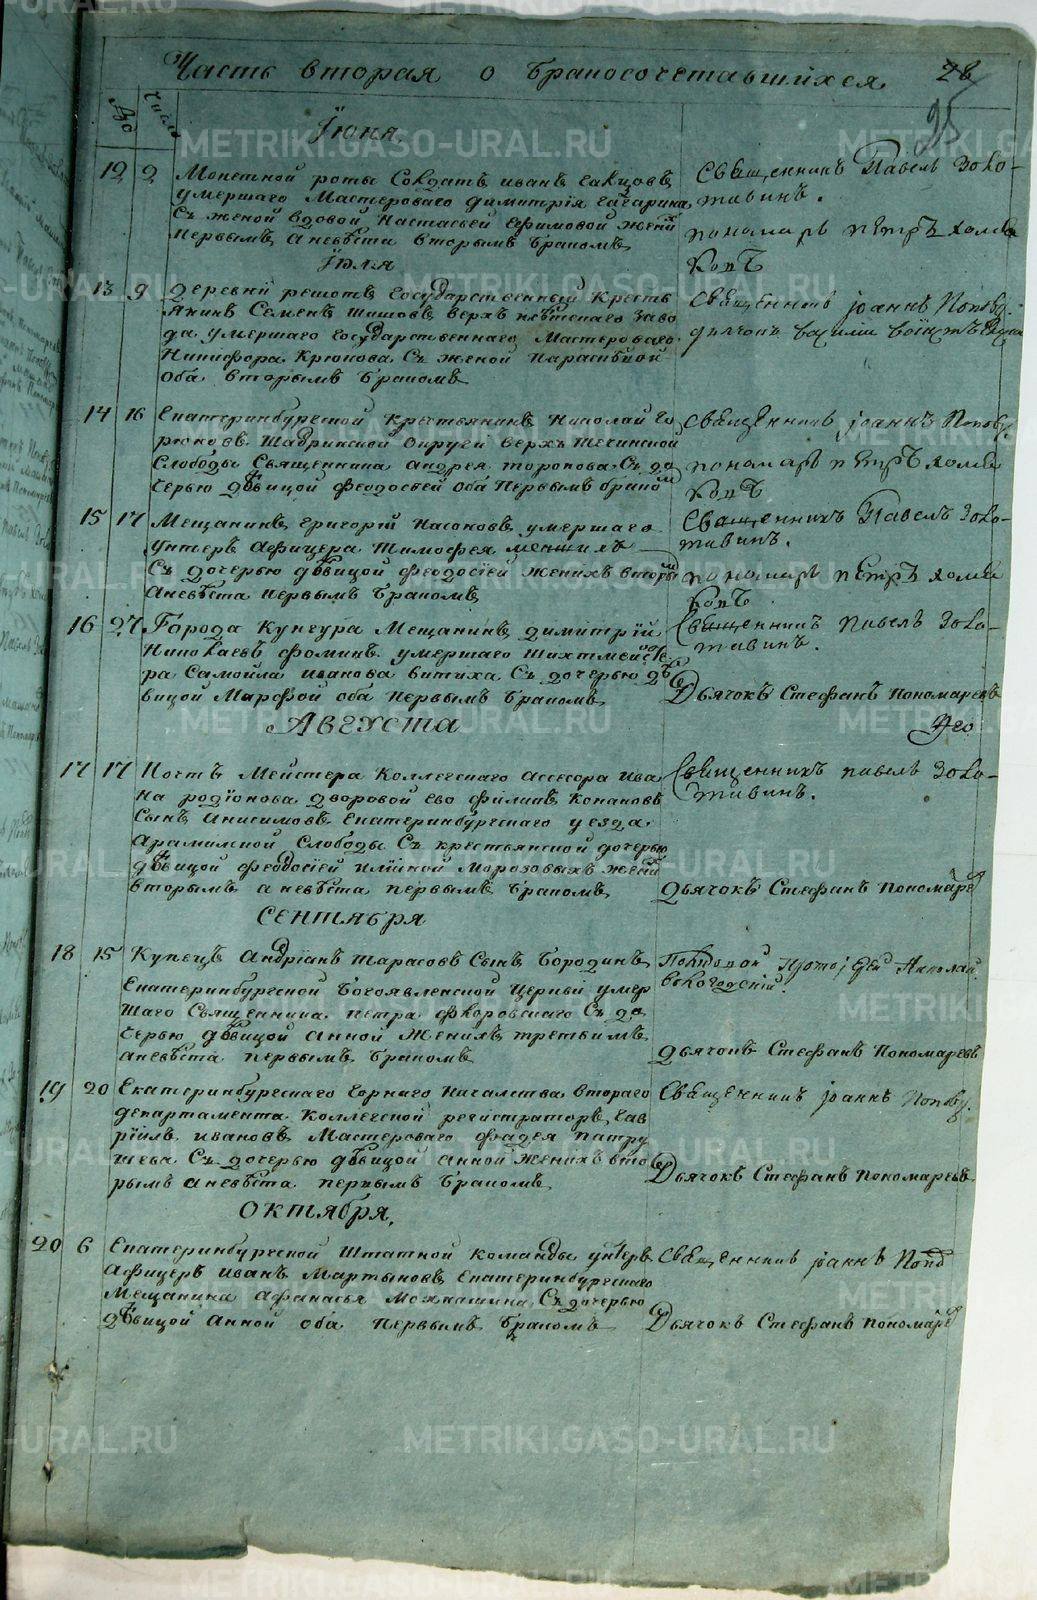 Часть вторая о бракосочетавшихся
28
25
№ Число
Іюня
12 2 Монетной роты Солдатъ иванъ
умершаго Мастероваго димитрія гагарина
Съ женой вдовой Настасьей Ефимовой жени
первымъ, а невѣста вторымъ бракомъ
Священникъ Павелъ Золо-
тавинъ.
пономарь петръ холмо
Іюля
13 9 деревни решотъ государственный Кресть
янинъ Семенъ Шишовъ верхъ заво
да умершаго государственнаго Мастероваго
Никифора Крюкова Съ женой
оба вторымъ бракомъ
Священникъ Іоаннъ Поповъ
14 16 Екатеринбургской Крестьянинъ Николай го
рюновъ Шадринской округи верхъ теченской
Слободы Священника андрея торопова Съ до
черью дѣвицой феодосьей оба первымъ брако
Священникъ Іоаннъ Поповъ
пономарь петръ
15 17 Мещанинъ григорій Насоновъ умершаго
унтеръ афицера Тимофея
Съ дочерью дѣвицой феодосіей женихъ вторы
а невѣста первымъ бракомъ
Священникъ Павелъ Золо-
тавинъ.
пономарь петръ
16 27 Города Кунгура Мещанинъ димитрій
Николаевъ фоминъ умершаго шихтмейсте
ра Самойла иванова Съ дочерью дѣ
вицой Марфой оба первымъ бракомъ
Священникъ павелъ Золо-
тавинъ.
Дьячокъ Стефанъ Пономаревъ
Августа
17 17 Почтъ Мейстера Коллегскаго ассесора ива
на родіонова дворовой ево филипъ Конановъ
Сынъ анисимовъ Екатеринбургскаго уезда
арамилской Слободы Съ крестьянской дочерью
дѣвицой феодосіей илійной Морозовыхъ жени
вторымъ а невѣста первымъ бракомъ
Священникъ павелъ Золо-
тавинъ.
Дьячокъ Стефанъ пономаре
Сентября
18 15 Купецъ андріанъ тарасовъ Сынъ бородинъ
Екатеринбургской богоявленской Церкви умер
шаго Священника петра флоровскаго Съ до
черью дѣвицой анной женихъ третьимъ
а невѣста первымъ бракомъ
Дьячокъ Стефанъ Пономаревъ
19 20 Екатеринбургскаго горнаго Началства втораго
департамента Коллегской регистраторъ гав
рiилъ ивановъ Мастероваго фадея патру
шева Съ дочерью дѣвицой анной женихъ вто
рымъ а невѣста первымъ бракомъ
Священникъ Іоаннъ Поповъ
Дьячокъ Стефанъ Пономаревъ
Октября
20 6 Екатеринбургской штатной команды унтеръ
афицеръ иванъ Мартыновъ Екатеринбургскаго
Мещанина афанасья Съ дочерью
дѣвицой анной оба первымъ бракомъ
Священникъ Іоаннъ Попо
Дьячокъ Стефанъ пономаре
METRIKI.GASO-URAL.RU